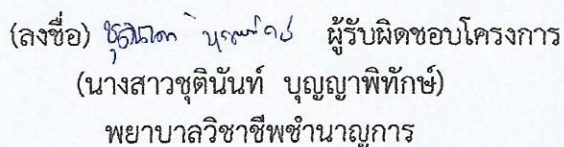 (ลงชื่อ) ผู้รับผิดชอบโครงการ
(นางสาวชุตินันท์ บุญญาพิทักษ์)
พยาบาลวิชาชีพชำนาญการ